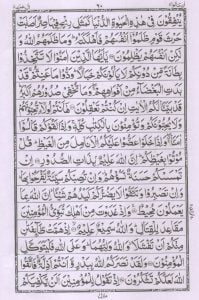 يُنْفِقُوْنَ فِيْ هٰذِهِ الْحَيٰوةِ الدُّنْيَا كَمَثَلِ رِيْحٍ فِيْهَا صِرٌّ اَصَابَتْ
حَرْثَ قَوْمٍ ظَلَمُوْٓا اَنْفُسَهُمْ فَاَهْلَكَتْهُ وَمَا ظَلَمَهُمُ اللّٰهُ وَ
لٰكِنْ اَنْفُسَهُمْ يَظْلِمُوْنَ يٰٓاَيُّهَا الَّذِيْنَ اٰمَنُوْا لَا تَتَّخِذُوْا
بِطَانَةً مِّنْ دُوْنِكُمْ لَا يَاْلُوْنَكُمْ خَبَالًا وَدُّوْا مَا عَنِتُّمْ قَدْ
بَدَتِ الْبَغْضَآءُ مِنْ اَفْوَاهِهِمْ وَمَا تُخْفِيْ صُدُوْرُهُمْ اَكْبَرُ
قَدْ بَيَّنَّا لَكُمُ الْاٰيٰتِ اِنْ كُنْتُمْ تَعْقِلُوْنَ هٰٓاَنْتُمْ اُولَآءِ تُحِبُّوْنَهُمْ
وَلَا يُحِبُّوْنَكُمْ وَتُؤْمِنُوْنَ بِالْكِتٰبِ كُلِّهٖ وَاِذَا لَقُوْكُمْ قَالُوْٓا
اٰمَنَّا وَاِذَا خَلَوْا عَضُّوْا عَلَيْكُمُ الْاَنَامِلَ مِنَ الْغَيْظِ قُلْ
مُوْتُوْا بِغَيْظِكُمْ اِنَّ اللّٰهَ عَلِيْمٌ بِذَاتِ الصُّدُوْرِ اِنْ
تَمْسَسْكُمْ حَسَنَةٌ تَسُؤْهُمْ وَاِنْ تُصِبْكُمْ سَيِّئَةٌ يَّفْرَحُوْا بِهَا
وَاِنْ تَصْبِرُوْا وَتَتَّقُوْا لَا يَضُرُّكُمْ كَيْدُهُمْ شَيْـًٔا اِنَّ اللّٰهَ بِمَا
يَعْمَلُوْنَ مُحِيْطٌ وَاِذْ غَدَوْتَ مِنْ اَهْلِكَ تُبَوِّئُ الْمُؤْمِنِيْنَ
مَقَاعِدَ لِلْقِتَالِ وَاللّٰهُ سَمِيْعٌ عَلِيْمٌ اِذْ هَمَّتْ طَّآئِفَتٰنِ
مِنْكُمْ اَنْ تَفْشَلَا وَاللّٰهُ وَلِيُّهُمَا وَعَلَى اللّٰهِ فَلْيَتَوَكَّلِ
الْمُؤْمِنُوْنَ وَلَقَدْ نَصَرَكُمُ اللّٰهُ بِبَدْرٍ وَّاَنْتُمْ اَذِلَّةٌ فَاتَّقُوا
اللّٰهَ لَعَلَّكُمْ تَشْكُرُوْنَ اِذْ تَقُوْلُ لِلْمُؤْمِنِيْنَ اَلَنْ يَّكْفِيَكُمْ